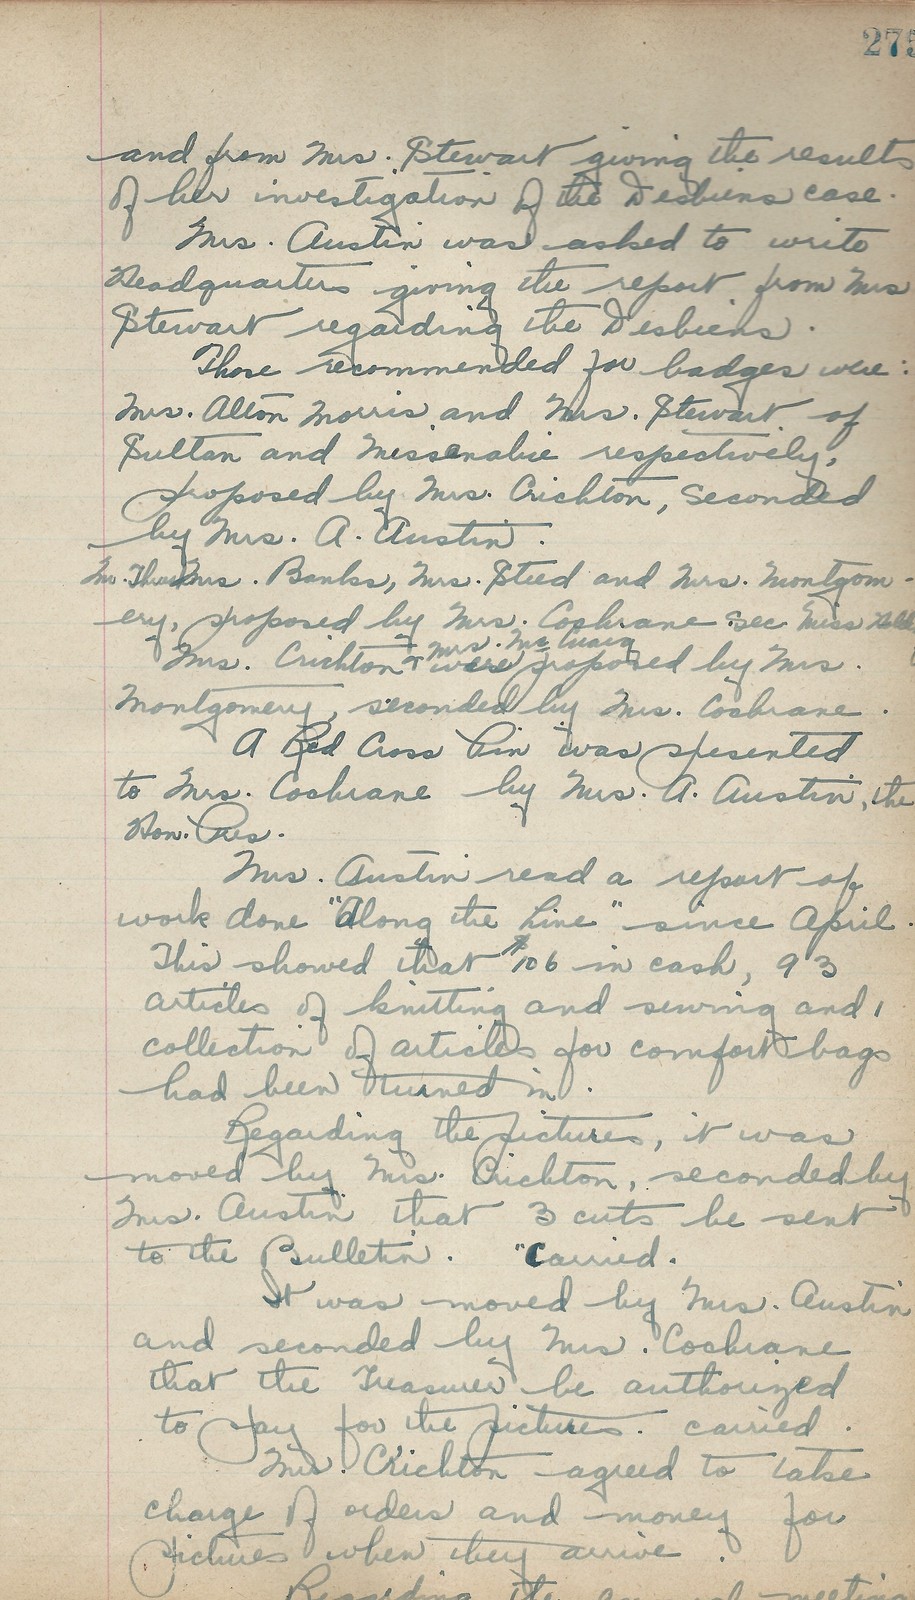 275
and from Mrs. Stewart giving the results
of her investigation of the Desbiens case.
Mrs. Austin was asked to write
Headquarters giving the report from Mrs
Stewart regarding the Desbiens.
Those recommended for badges were:
Mrs. Alton Morris and Mrs. Stewart of
Sultan and Missanabie respectively,
proposed by Mrs. Crichton, Seconded
by Mrs. A. Austin.
Mrs. Banks, Mrs. Steed and Mrs. Montgom-
ery, proposed by Mrs. Cochrane sec Miss
Mrs. McCuaig
Mrs. Crichton + were proposed by Mrs.
Montgomery, seconded by Mrs. Cochrane.
A Red Cross Pin was presented
to Mrs. Cochrane by Mrs. A. Austin, the
Hon. Pres.
Mrs. Austin read a report of
work done "Along the Line" since April.
This showed that $106 in cash, 93
articles of knitting and sewing and 1
collection of articles for comfort bags
had been turned in.
Regarding the pictures, it was
moved by Mrs. Crichton, seconded by
Mrs. Austin that 3 cuts be sent
to the Bulletin. "Carried.
It was moved by Mrs. Austin
and seconded by Mrs. Cochrane
that the Treasurer be authorized
to pay for the pictures. carried.
Mrs. Crichton agreed to take
charge of orders and money for
pictures when they arrive.
Regarding the annual meeting